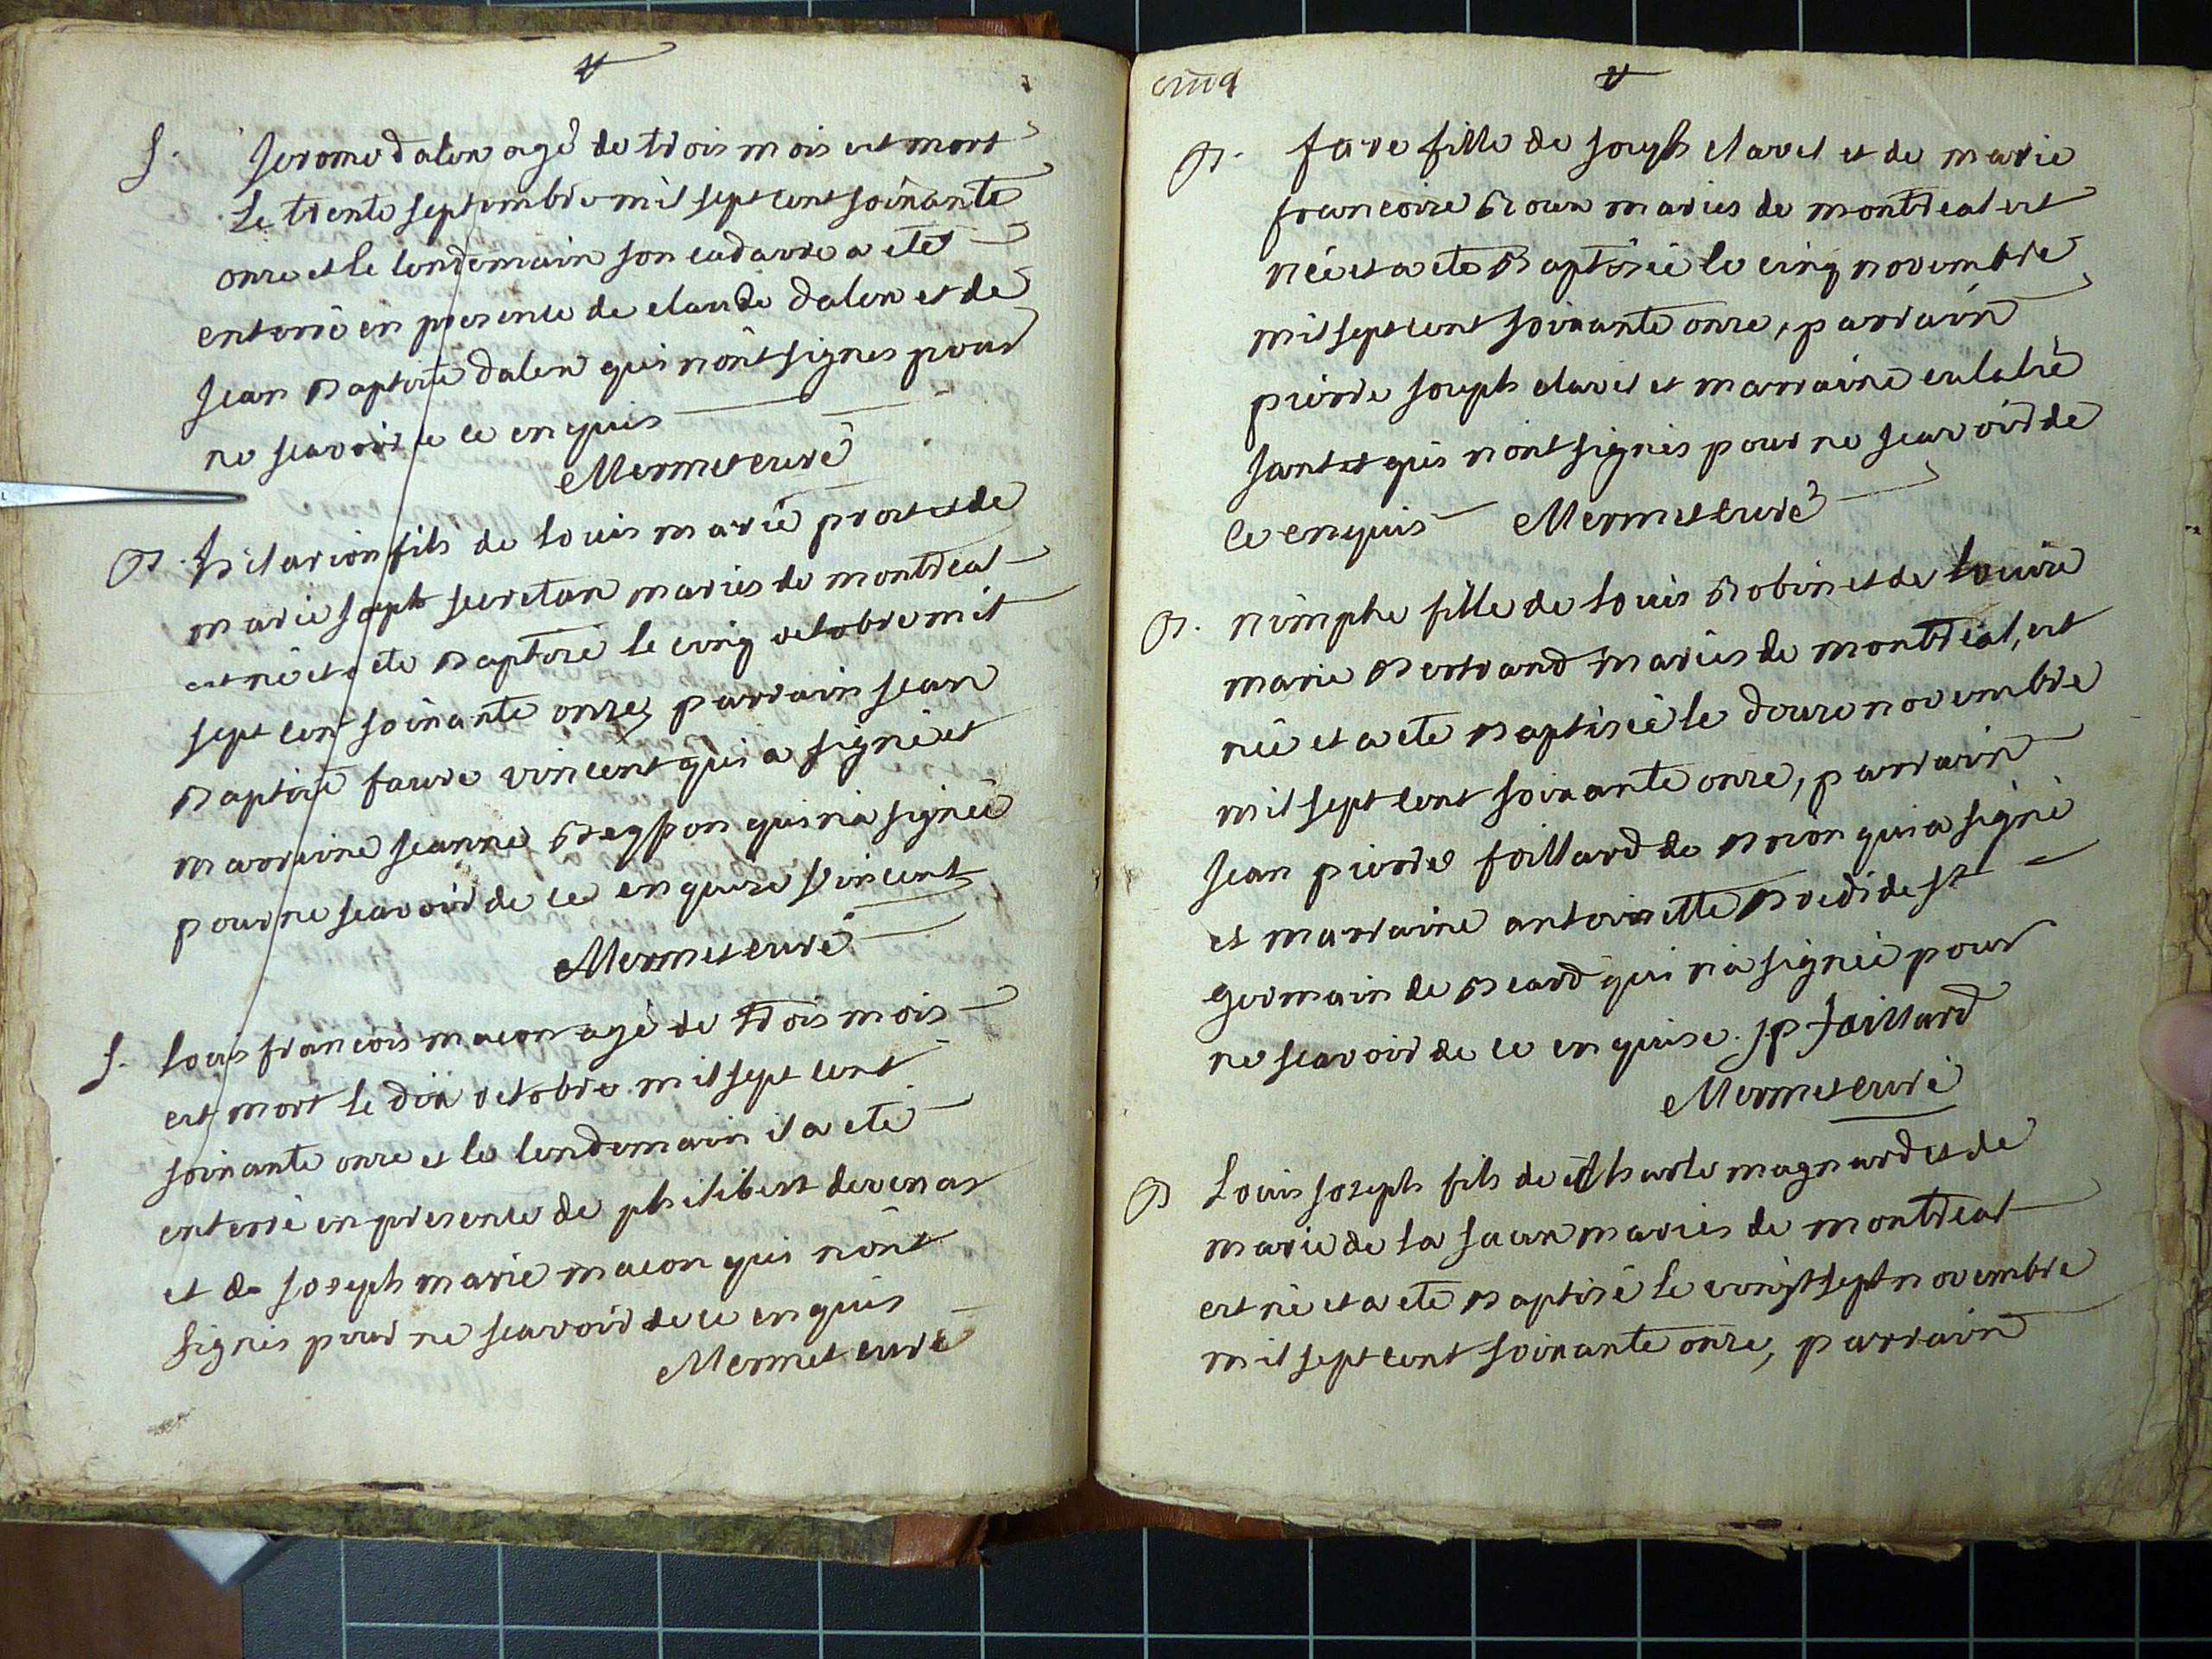 S. Jerome dalen agé de trois mois est mort
Le trente septembre mil sept cent soixante
onze et le lendemain son cadavre a eté
enterré en presence de claude dalen et de
Jean Baptiste dalen qui n'ont signés pour
ne scavoir de ce enquis
Mermet curé
B. hilarion fils de Louis marie prost et de
marie joseph secretan mariés de montreal
est né et a eté Baptisé le cinq octobre mil
sept cent soixante onze, parrain jean
Baptiste faure vincent qui a signé et
marraine jeanne qui n'a signée
pour ne scavoir de ce enquise Vincent
Mermet curé
S. Louis francois macon agé de trois mois
est mort le dix octobre mil sept cent
soixante onze et le lendemain il a eté
enterré en presence de philibert devenas
et de joseph marie macon qui n'ont
signés pour ne scavoir de ce enquis
Mermet curé
cinq
B. fare fille de joseph clavel et de marie
francoise Roux mariés de montreal est
née et a eté Baptisée le cinq novembre
mil sept cent soixante onze, parrain
pierre joseph clavel et marraine eulalie
santet qui n'ont signés pour ne scavoir de
ce enquis Mermet curé
B. nimphe fille de Louis Robin et de Louise
marie Bertrand mariés de montreal, est
née et a eté Baptisée le douze novembre
mil sept cent soixante onze, parrain
jean pierre foillard de Brion qui a signé
et marraine antoinette Bredi de st
germain de Beard qui n'a signée pour
ne scavoir de ce enquise. j.p foillard
Mermet curé
B Louis joseph fils de Charle magnard et de
marie de la mariés de montreal
est né et a eté Baptisé le vingt sept novembre
mil sept cent soixante onze, parrain